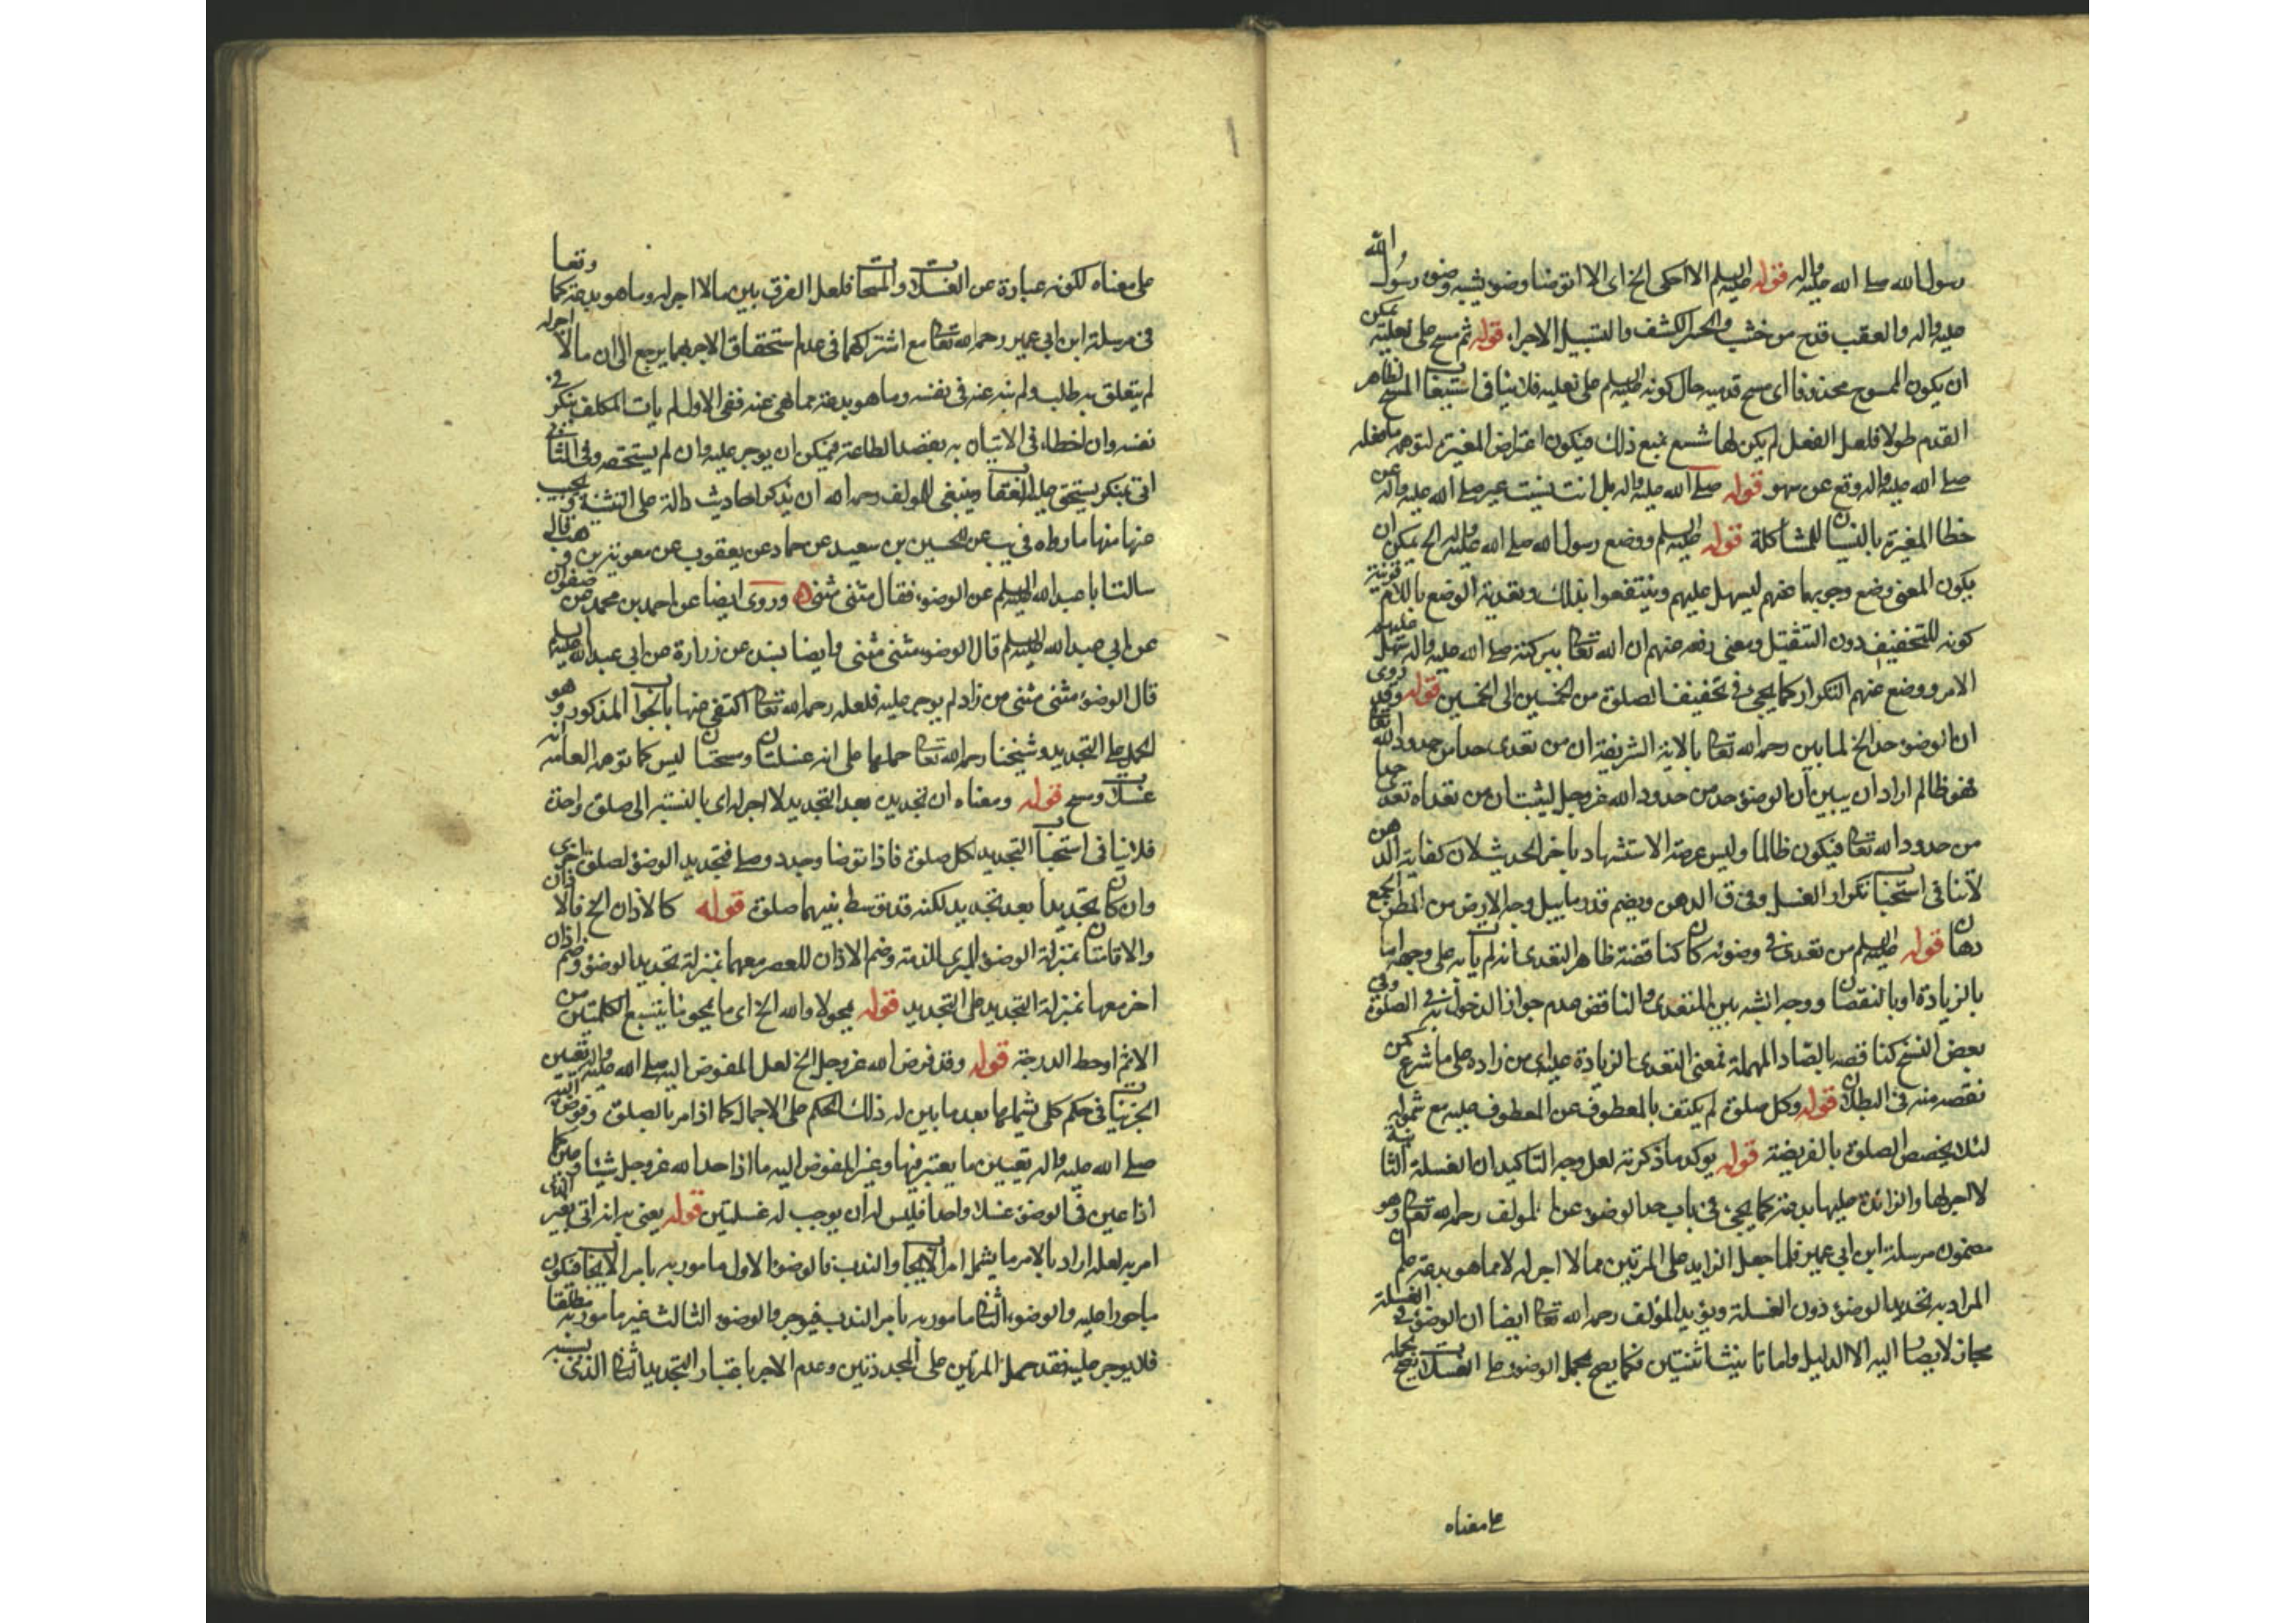 رسول الله صلى الله عليه واله قوله عليه السلم الا احكى الخ اى الا اتوضا وضوء يشبه وضوء رسول الله
عليه واله والعقب قدح من خشب والحسر الكشف والتسبيل الاجراء قوله ثم مسح على نعليه يمكن
ان يكون الممسوح محذوفا اى مسح قدميه حال كونه عليه السلم على نعليه فلا ينافى استيعاب المسح لظاهر
القدم طولا فلعل الفعل لم يكن لها شسع يمنع ذلك فيكون اعتراض المغيرة لتوهمه ما فعله
صلى الله عليه واله وقع عن سهو قوله صلى الله عليه واله بل انت نسيت عبر صلى الله عليه واله عن
خطا المغيرة بالنسيان للمشاكلة قوله عليه السلم ووضع رسول الله صلى الله عليه واله الخ يمكن ان
يكون المعنى وضع وجوبها عنهم ليسهل عليهم وينتفعوا بذلك وتعدية الوضع باللام قرينة
كونه للتخفيف دون التثقيل ومعنى رفعه عنهم ان الله تعالى ببركته صلى الله عليه واله سهل عليهم
الامر ووضع عنهم التكرار كما يجئ فى تخفيف الصلوة من الخمسين الى الخمس قوله وقد روى
ان الوضوء حد الخ لما بين رحمه الله تعالى بالاية الشريفة ان من تعدى حدا من حدود الله تعالى
فهو ظالم اراد ان يبين ان الوضوء حد من حدود الله عز وجل ليثبت ان من تعداه تعدى حدا
من حدود الله تعالى فيكون ظالما وليس غرضه الاستشهاد باخر الحديث لان كفاية الدهن
لا تنافى استحباب تكرار الغسل وفى ق الدهن ويضم قدر ما يبل وجه الارض من المطر الجمع
دهان قوله عليه السلم من تعدى فى وضوئه كان كناقضه ظاهر التعدى انه لم يات به على وجهه اما
بالزيادة او بالنقصان ووجه الشبه بين المتعدى والناقض عدم جواز الدخول به فى الصلوة وفى
بعض النسخ كناقصه بالصاد المهملة فمعنى التعدى الزيادة عليه اى من زاده على ما شرع كمن
نقصه منه فى البطلان قوله وكل صلوة لم يكتف بالمعطوف عن المعطوف عليه مع شموله
لئلا يخصص الصلوة بالفريضة قوله يوكد ما ذكرته لعل وجه التاكيد ان الغسلة الثانية
لا اجر لها والزائدة عليها بدعة كما يجئ فى باب حد الوضوء عن المولف رحمه الله تعالى وهو
مضمون مرسلة ابن ابى عمير فلما جعل الزايد على المرتين مما لا اجر له لا مما هو بدعة علم ان
المراد به تجديد الوضوء دون الغسلة ويؤيد المؤلف رحمه الله تعالى ايضا ان الوضوء فى الغسلة
مجاز لا يصار اليه الا لدليل واما تثنيتين فكما يصح بحمل الوضوء على الغسلات يصح بحمله
على معناه
على معناه لكونه عبارة عن الغسلات والمسحات فلعل الفرق بين ما لا اجر له وما هو بدعة كما وقعا
فى مرسلة ابن ابى عمير رحمه الله تعالى مع اشتراكهما فى عدم استحقاق الاجر بهما يرجع الى ان ما لا اجر له
لم يتعلق به طلب ولم ينه عنه فى نفسه وما هو بدعة مما نهى عنه ففى الاول لم يات المكلف بمنكر فى
نفسه وان اخطاء فى الاتيان به بقصد الطاعة فيمكن ان يوجر عليه وان لم يستحقه وفى الثانى
اتى بمنكر يستحق عليه العقاب وينبغى للمولف رحمه الله ان يذكر احاديث دالة على التثنية ويجيب
عنها منها ما رواه فى يب عن الحسين بن سعيد عن حماد عن يعقوب عن معوية بن وهب قال
سالت ابا عبد الله عليه السلم عن الوضوء فقال مثنى مثنى وروى ايضا عن احمد بن محمد عن صفوان
عن ابى عبد الله عليه السلم قال الوضوء مثنى مثنى وايضا بسند عن زرارة عن ابى عبد الله عليه السلم
قال الوضوء مثنى مثنى من زاد لم يوجر عليه فلعله رحمه الله تعالى اكتفى عنها بالجواب المذكور وهو
الحمل على التجديد وشيخنا رحمه الله تعالى حملها على انه غسلتان ومسحتان ليس كما توهمه العامة انه
غسلات ومسح قوله ومعناه ان تجديده بعد التجديد لا اجر له اى بالنسبة الى صلوة واحدة
فلا ينافى استحباب التجديد لكل صلوة فاذا توضا وجدد وصلى فتجديد الوضوء لصلوة اخرى
وان كان تجديدا بعد تجديد لكنه قد توسط بينهما صلوة قوله كالاذان الخ فالاذان
والاقامتان بمنزلة الوضوء المبرئ للذمة وضم الاذان للعصر معهما بمنزلة تجديد الوضوء وضم اذان
اخر معها بمنزلة التجديد على التجديد قوله يمحو لا والله الخ اى ما يمحو ما يتبع الكلمتين من
الاثم او حط الدرجة قوله وقد فوض الله عز وجل الخ لعل المفوض اليه صلى الله عليه واله تعيين
الجزئيات فى حكم كلى يشملها بعد ما بين له ذلك الحكم على الاجمال كما اذا امر بالصلوة وفوض اليه
صلى الله عليه واله تعيين ما يعتبر فيها وغير المفوض اليه ما اذا حد الله عز وجل شيئا
اذا عين فى الوضوء غسلا واحدا فليس له ان يوجب له غسلتين قوله يعنى به انه اتى بغير الذى
امر به لعله اراد بالامر ما يشمل امر الايجاب والندب فالوضوء الاول مامور به بامر الايجاب فيكون
ماجورا عليه والوضوء الثانى مامور به بامر الندب فيوجر والوضوء الثالث غير مامور به مطلقا
فلا يوجر عليه فقد حمل المرتين على المجددتين وعدم الاجر باعتبار التجديد الثانى الذى